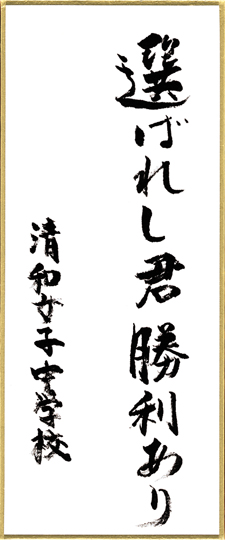 選ばれし君勝利あり
清和女子中学校